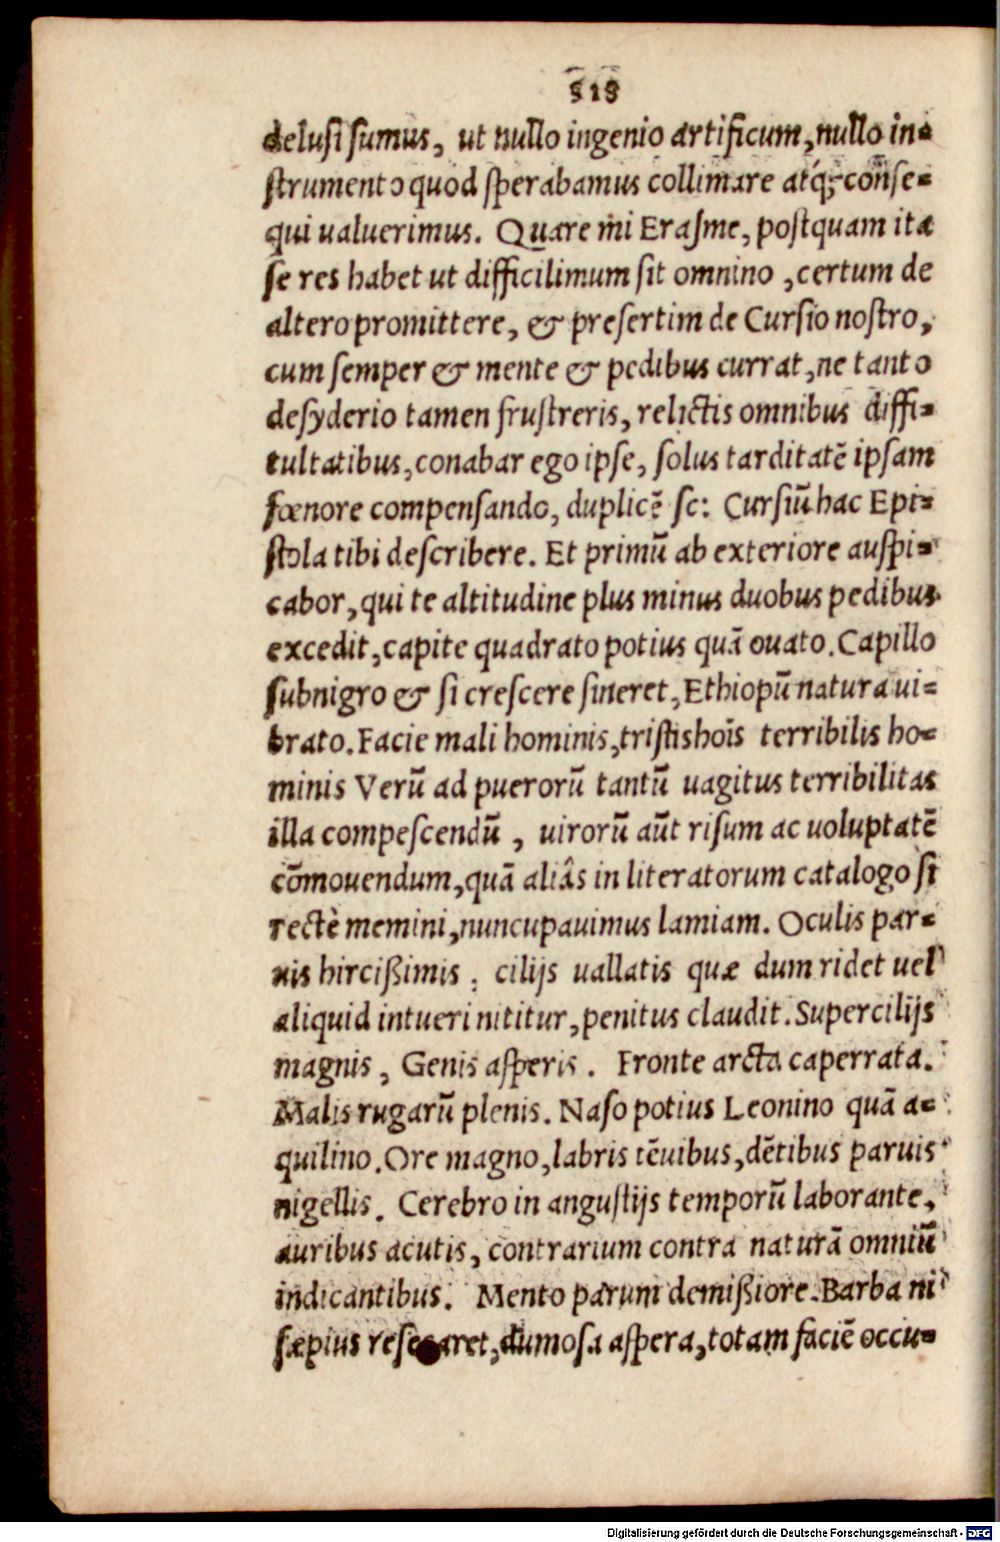 818
deluſi ſumus, ut nullo ingenio artificum, nullo in=
ſtrumento quod ſperabamus collimare atq́; conſe=
qui ualuerimus. Quare mi Eraſme, poſtquam ita
ſe res habet ut difficilimum ſit omnino, certum de
altero promittere, & preſertim de Curſio noſtro,
cum ſemper & mente & pedibus currat, ne tanto
deſyderio tamen fruſtreris, relictis omnibus diffi=
cultatibus, conabar ego ipſe, ſolus tarditatē ipſam
fœnore compenſando, duplicē ſc: Curſiū hac Epi=
ſtola tibi deſcribere. Et primū ab exteriore auſpi=
cabor, qui te altitudine plus minus duobus pedibus
excedit, capite quadrato potius quā ouato. Capillo
ſubnigro & ſi creſcere ſineret, Ethiopū natura ui=
brato. Facie mali hominis, triſtis hoīs terribilis ho=
minis Verū ad puerorū tantū uagitus terribilitas
illa compeſcendū, uirorū aūt riſum ac uoluptatē
cōmouendum, quā aliâs in literatorum catalogo ſi
rectè memini, nuncupauimus lamiam. Oculis par=
uis hircißimis, cilijs uallatis quæ dum ridet uel
aliquid intueri nititur, penitus claudit. Supercilijs
magnis, Genis aſperis. Fronte arcta caperrata.
Malis rugarū plenis. Naſo potius Leonino quā a=
quilino. Ore magno, labris tēuibus, dētibus paruis
nigellis. Cerebro in anguſtijs temporū laborante,
auribus acutis, contrarium contra naturā omniū
indicantibus. Mento parum demißiore. Barba ni
ſæpius reſecaret, dumoſa aſpera, totam faciē occu=
Digitalisierung gefördert durch die Deutsche Forschungsgemeinschaft - DFG